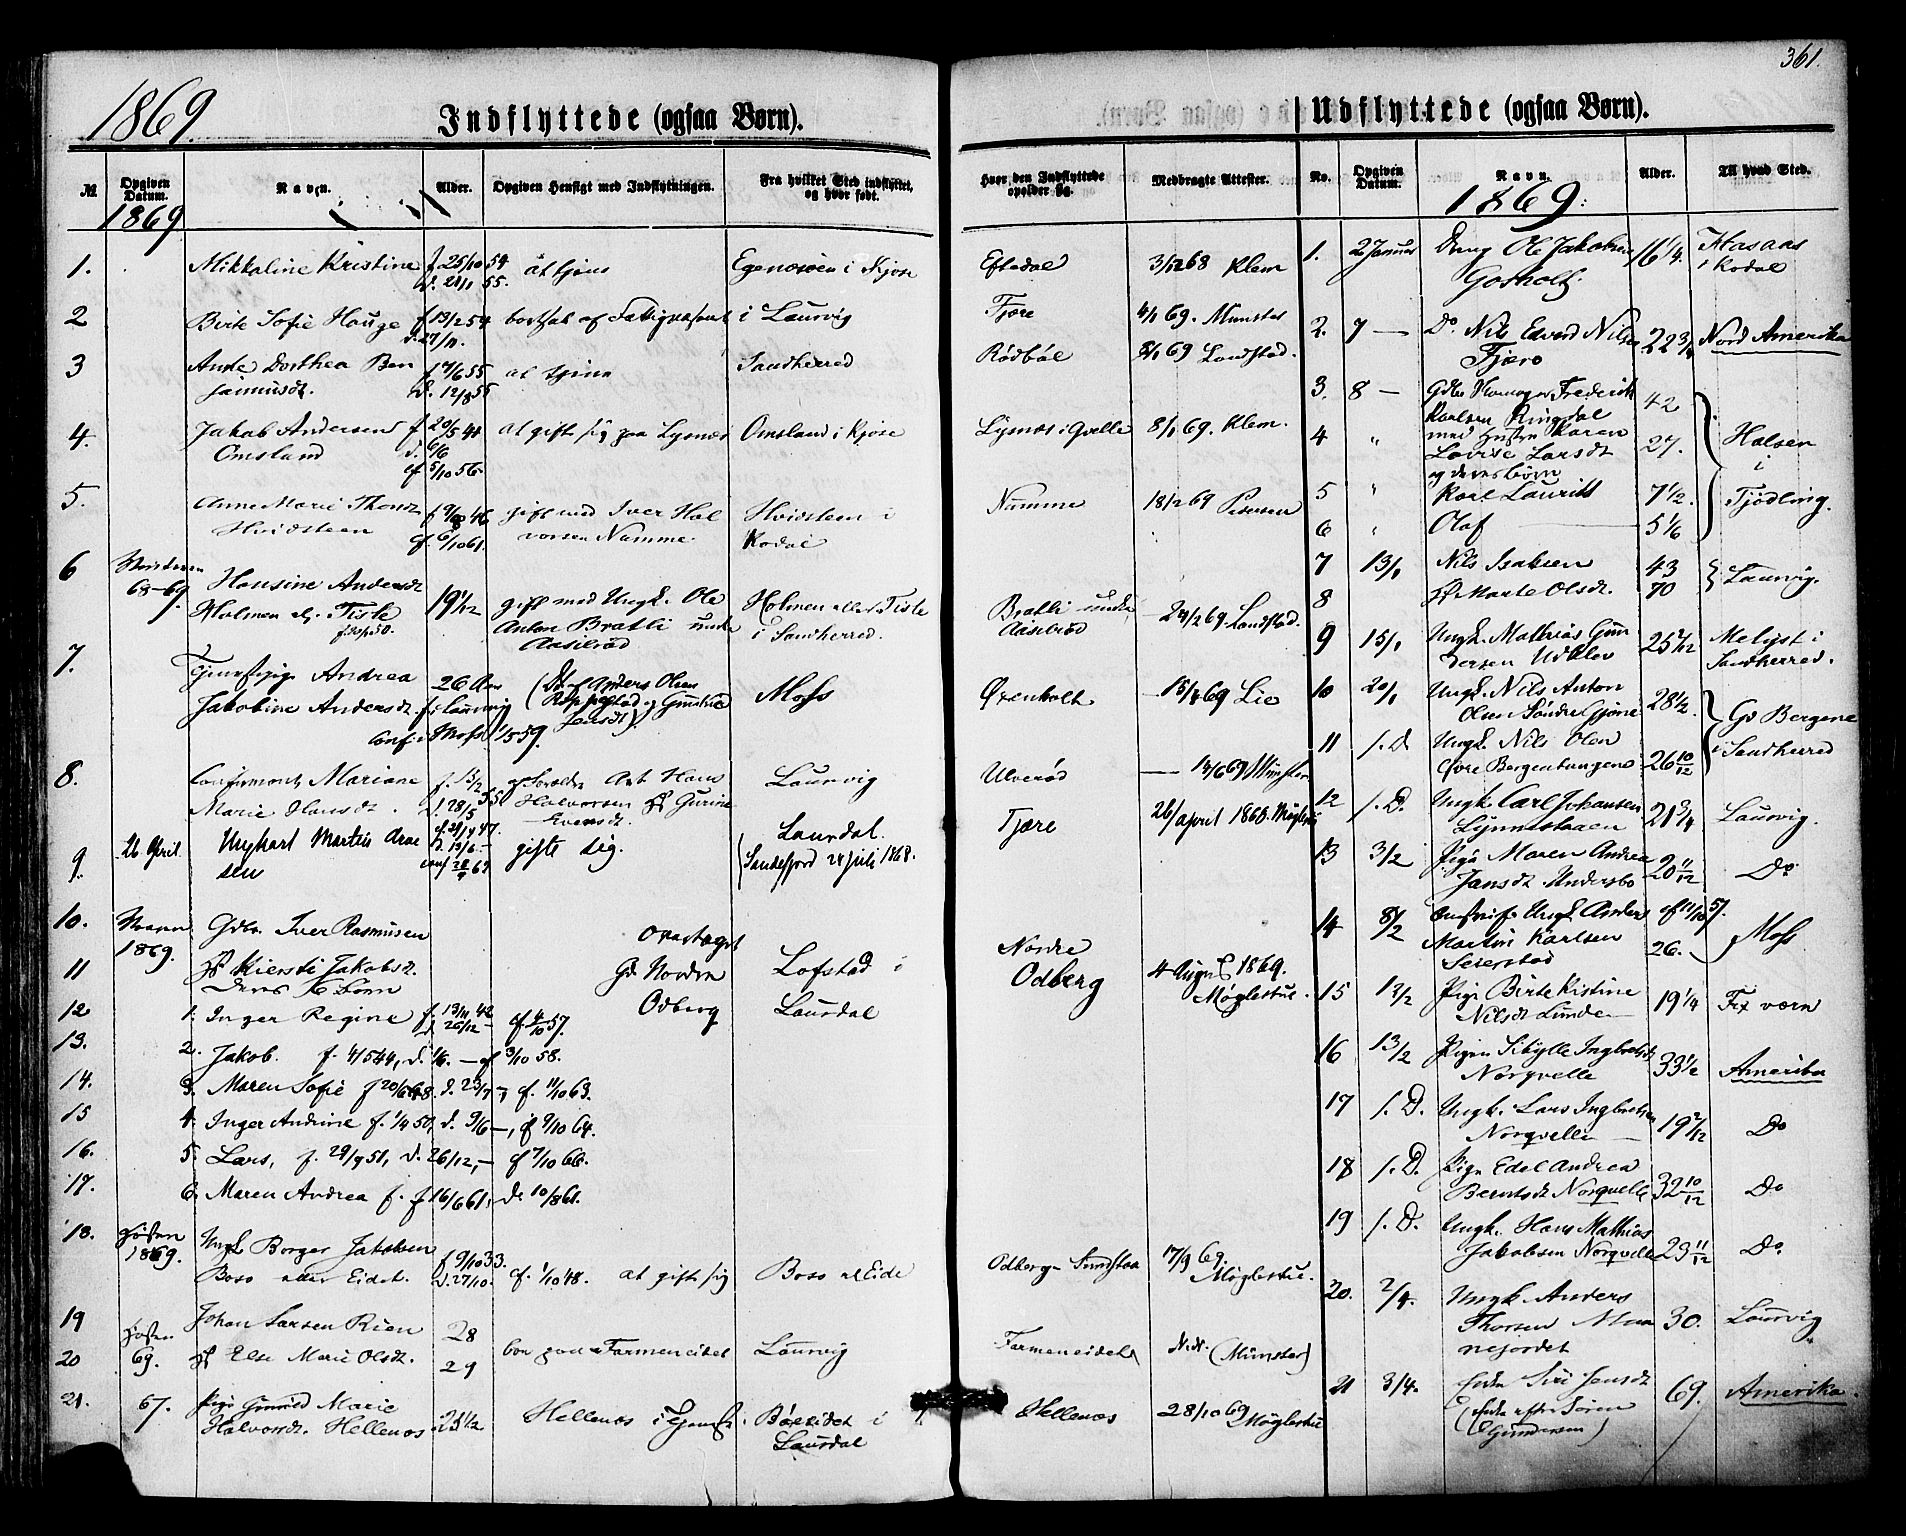 361.
1869.
Indflyttede (ogsaa Børn).
№
Opgiven Datum.
Navn.
Alder.
Opgiven Hensigt med Indflytningen.
Fra hvilket Sted indflyttet, og hvor født.
Hvor den Indflyttede opholder sig.
Medbragte Attester.
1869
1. Mikkaline Kristine f 25/10 54 at tjene Egenæsøen i Kjose Eftedal 3/12 68 Klem
d. 21/1 55.
2 Birte Sofie Hauge f 13/2 54 bortsat af Fattigvæsenet i Laurvig Fjære 4/1 69. Munster
3 Ande Dorthea Ben f 17/6 55 at tjene Sandherred Rødbøl 8/1 69 Landstad.
jaminsdt. d. 12/8 55
4. Jakob Andersen f 20/5 41 at gifte sig paa Lysnæs Omsland i Kjose Lysnæs i Qvelle 8/1 69. Klem.
Omsland
cf 5/10 56.
5. Anne Marie Thorsdt gift med Iver Hal Hvidsteen i Numme 18/2 69 Pedersen
Hvidsteen cf. 6/10 61. vorsen Numme. Kodal
6 68-69. Hansine Andersdt 19 1/12 gift med Ungk. Ole Holmen eller Tiste Bratli under 24/2 69 Landstad.
Holmen elr. Tiste Anton Bratli under i Sandherred. Aasilrød
Aasilrød
7. Andrea 26 Aar (D. af Anders Olsen Moss Ørenholt 15/4 69 Lie
Jakobine Andersdt. f. i Laurvig
conf. i Moss 1/5 59.
8. Mariane f. 13/2 Laurvig Ulverød 14/6 69 Munster
Marie Hansdt. d. 28/5 55 Halvorsen Gurine
Evensdt.
9. 26 April Ungkarl Martin Arne gifte sig. Laurdal. Tjære 26/april 1868. Møglestue
sen Sandefjord 28 juli 1868.
10. 1869. Gdbr. Iver Rasmusen overtaget Nordre
11 Kiersti Jakobsdt. Gd Nordre Lofstad i Odberg 4 August 1869.
deres 6 Børn Odberg Laurdal Møglestue.
12 1. Inger Regine f. 13/11 42 d. 26/12 – cf 4/10 57.
13. 2. Jakob. f. 4/5 44, d. 1/6. – cf 3/10 58.
14. 3. Maren Sofie f 20/6 48. d. 23/7 –, cf. 11/10 63.
15 4. Inger Andrine f. 1/4 50, d. 9/6 –, cf 9/10 64.
16. 5. Lars, f. 29/9 51, d. 26/12, – cf 7/10 66.
17. 6. Maren Andrea f. 16/6 61, d. 10/8 61.
18. Høsten 1869. Ungk Borger Jakobsen f 9/10 33. cf. 1/10 48. at gifte sig Boso el Eide Odberg Sundstaa 17/9 69. Møglestue.
Boso eller Eidet. d. 27/10.
19 Høsten Johan Larsen Rien 28 bor paa Farmeneidet Laurvig Farmeneidet (Munster)
20 69. Else Marie Olsdt. 29
21. 67. Pige Gunild Marie 23 1/2 Hellenæs i Tjeneste Bøeeidet i Hellenæs 28/10 69 Møglestue
Halvorsdt. Hellenæs Laurdal
Udflyttede (ogsaa Børn).
No.
Opgiven Datum.
Navn.
Alder.
Til hvad Sted.
1869:
1. 2 Januar Dreng Ole Jakobsen 16 1/4. Hasaas
Gosholt. i Kodal
2. 7 – Do. Nils Edvard Nilsen 22 3/4 Nord Amerika
Fjære
3. 8 – Frederik 42
Karlsen Ringdal
4 " med Hustru Karen 27. Halsen
Lovise Larsdt i
og deres børn
5 " Karl Laurits 7 1/2. Tjødling.
6 " Olaf 5 1/6
7 13/1 Nils Isaksen 43 Laurvig.
8 Marte Olsdt. 70
9 15/1 Ungk. Mathias Gun 25 2/12 Melyst i
dersen Udklev Sandherred.
10 20/1 Ungk. Nils Anton 28 1/2. Gd Bergene
Olsen Søndre Gjone
11 s. D. Ungk. Nils Olsen 26 10/12 i Sandherred
Øvre Bergentungene
12 s. D. Ungk Carl Johansen 21 3/4 Laurvig.
13 3/2 Pige Maren Andrea 20 11/12 Do
Jansdt Undersbo
14 8/2 Ungk Anders cf 11/10 57. Moss
Martin Karlsen 26.
Seierstad
15 13/2 Pige Birte Kistine 19 1/4 Frx værn
Nilsdt Lunde
16 13/2 Pigen Sibylle Ingbretsdt 33 1/2 Amerika
Norqvelle
17 s. D. Ungk. Lars Ingbretsen 19 2/12 Do
Norqvelle
18 s. D. Pige Edel Andrea 32 10/12 Do
Berntsdt Norqvelle
19 s. D. Ungk. Hans Mathias 23 11/12 Do
Jakobsen Norqvelle
20. 2/4. Ungk. Anders 30. Laurvig
Thorsen
nejordet
21 3/4. Enke Siri Jensdt 69. Amerika.
(Enke efter Søren
Gundersen)